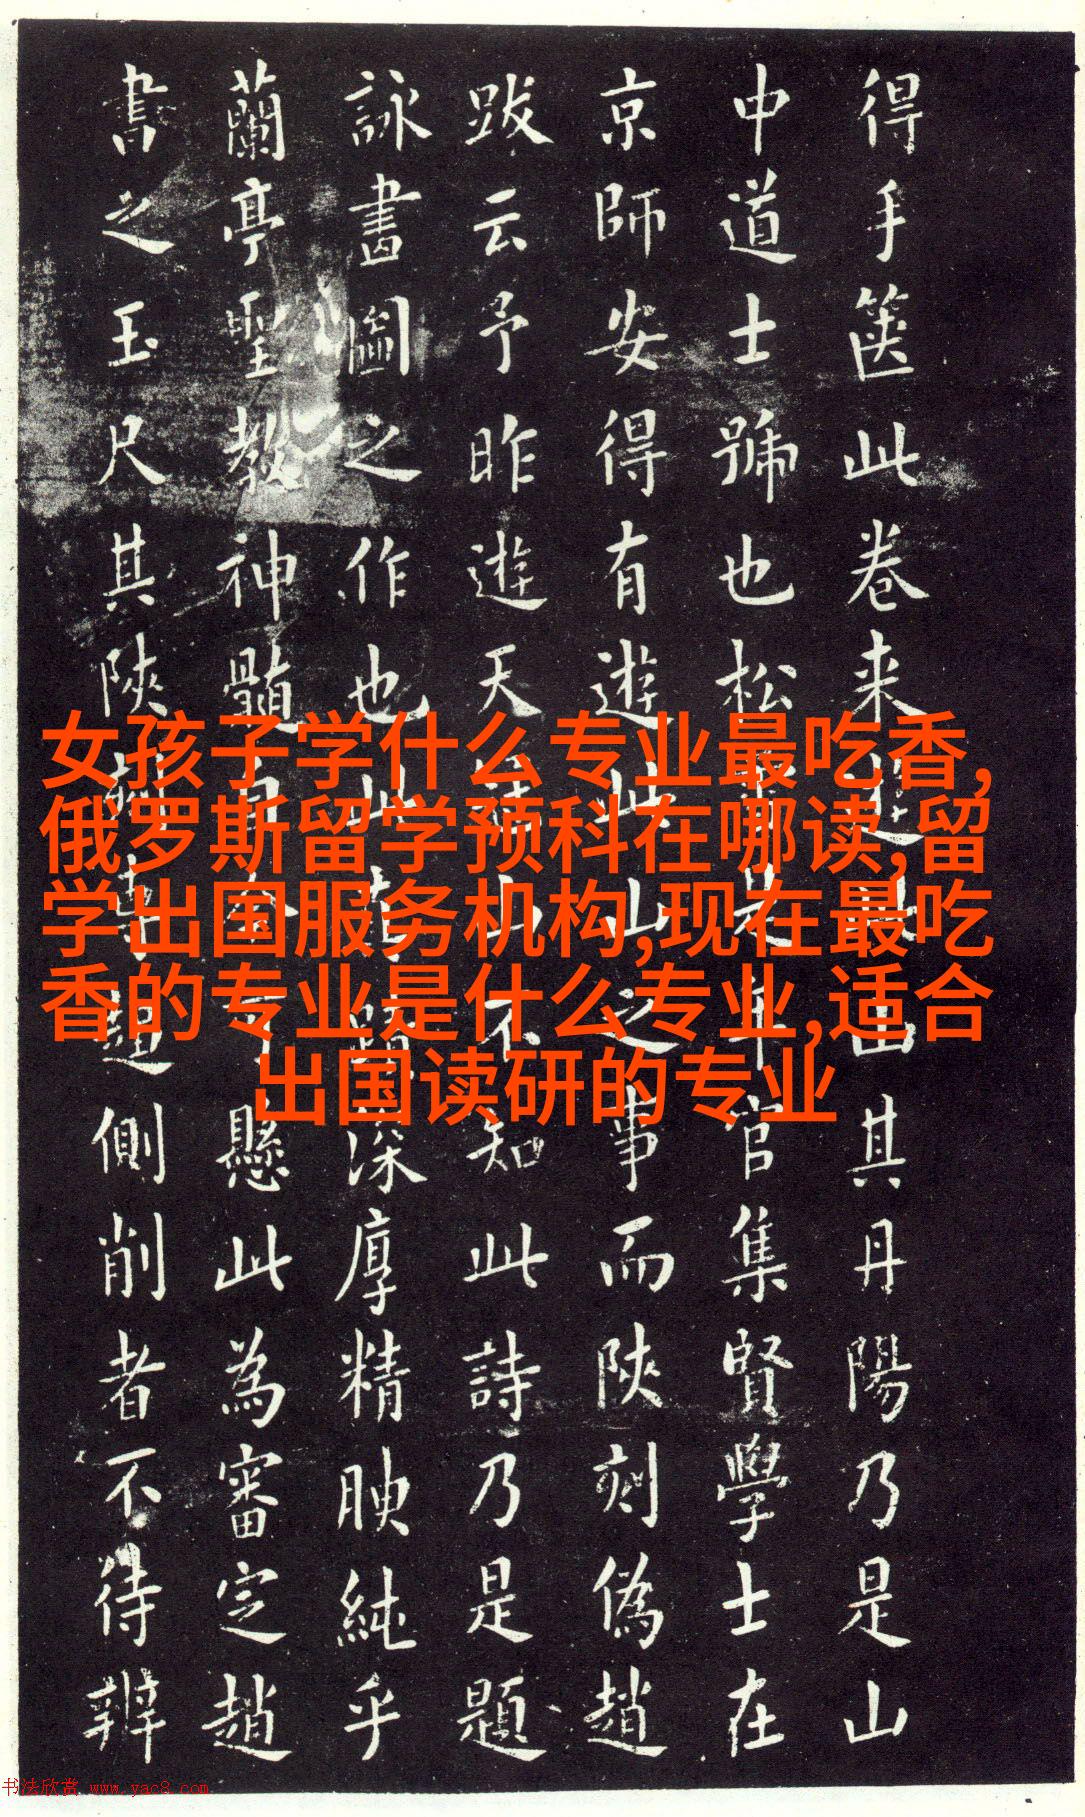 得手箧此卷来山其丹陽乃是山
中道士號也松年官集賢學士在
京師安得有遊此山之事而陝刻偽趙
跋云予昨遊天山不知此詩乃是題
詠畫圖之作也此深厚精映純乎
蘭亭聖教神髓懸此為審定趙
書之玉尺其陝側削者不待辨
女孩子学什么专业最吃香,
俄罗斯留学预科在哪读,留
学出国服务机构,现在最吃
香的专业是什么专业,适合
出国读研的专业
书法欣赏 www.yac8.com